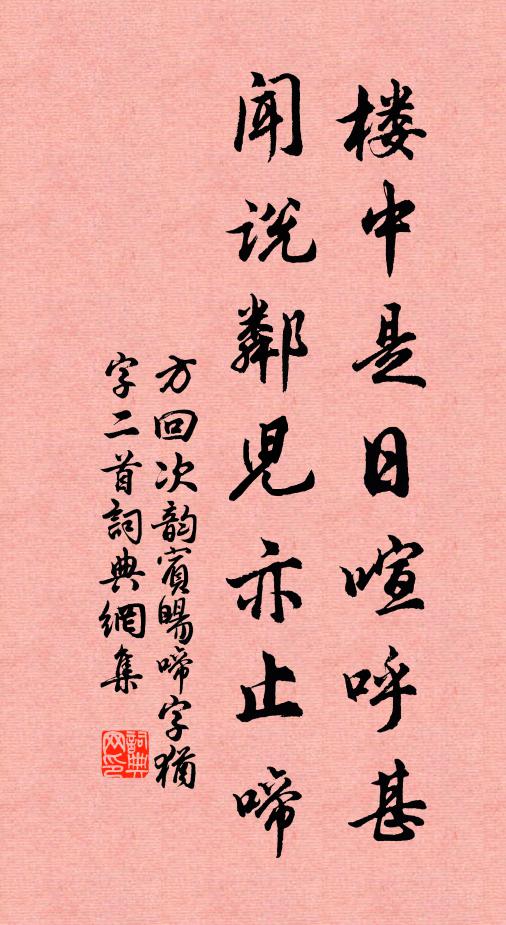 楼中是日喧呼甚
闻说鄰兒亦止啼
方回次韵賓暘啼字猶
字二首詞典網集
詞典网印